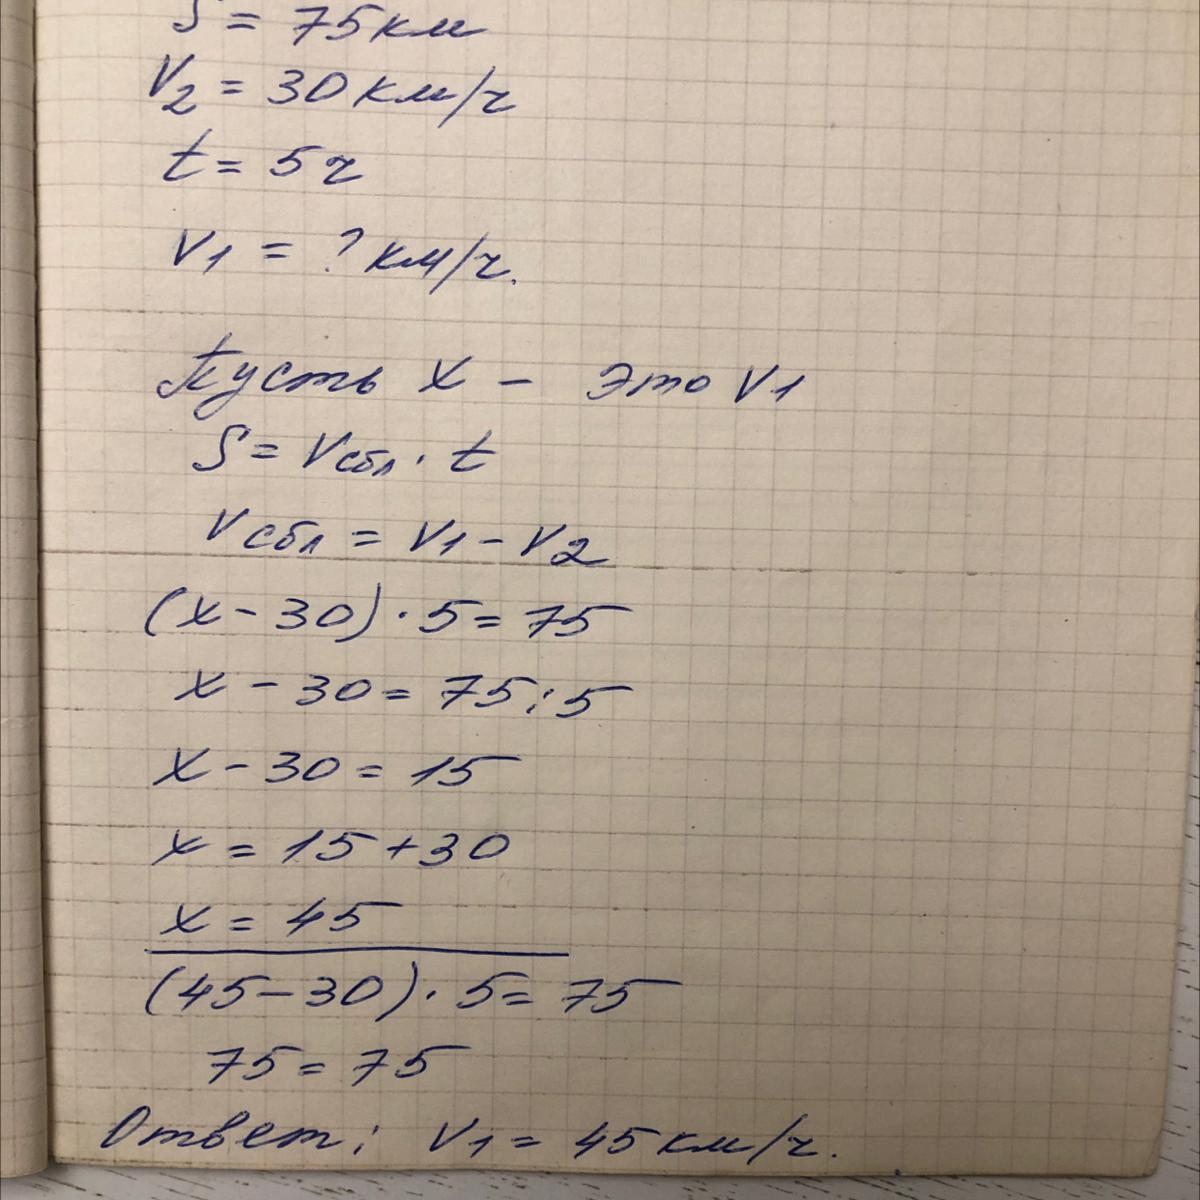 S = 75 км
V2 = 30 км/ч
t = 5 ч
V1 = ? км/ч.
Пусть x - это V1
S = Vсбл · t
Vсбл = V1 - V2
(x - 30) · 5 = 75
x - 30 = 75 : 5
x - 30 = 15
x = 15 + 30
x = 45
(45 - 30) · 5 = 75
75 = 75
Ответ: V1 = 45 км/ч.